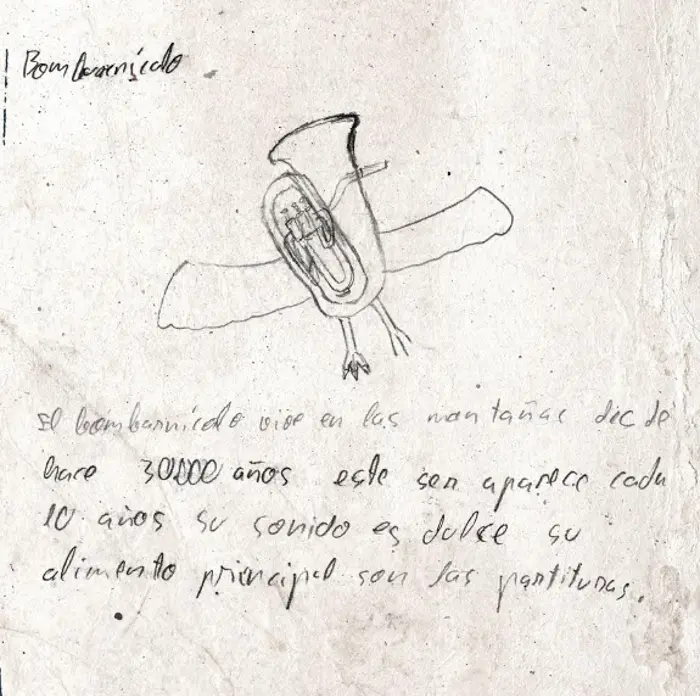 Bombarnícolo
El bombarnícolo vive en las montañas desde
hace 30000 años este ser aparece cada
10 años su sonido es dulce su
alimento principal son las partituras.